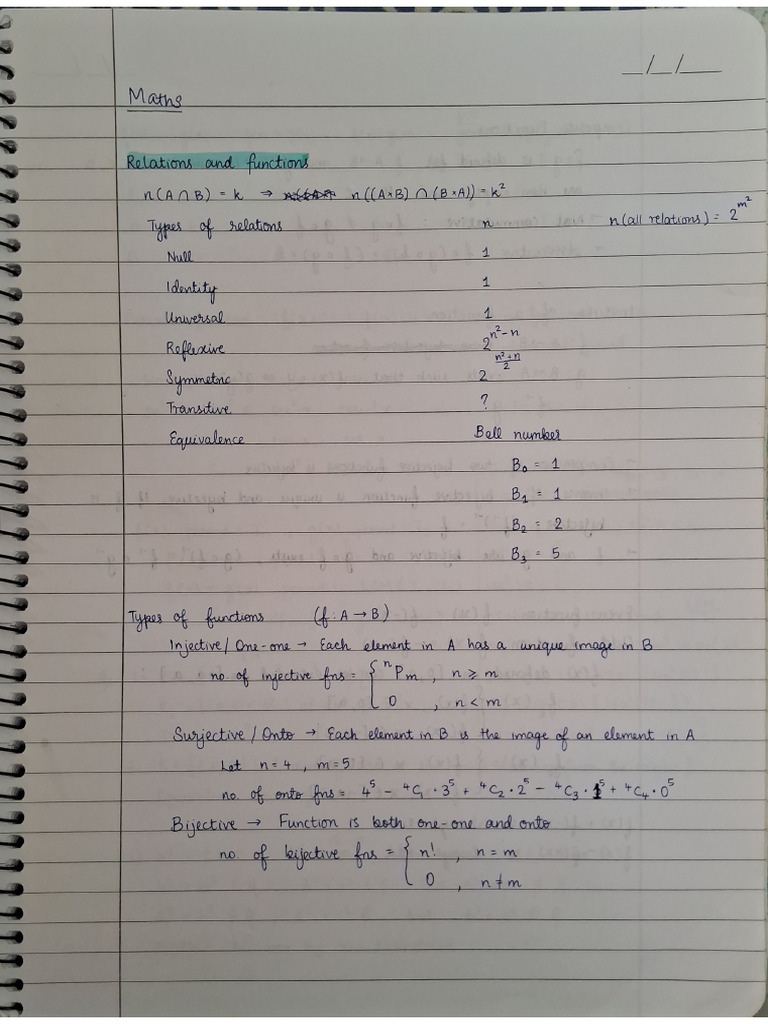 _/_/__
Maths
Relations and functions
n(A ∩ B) = k ⇒ n((A×B) ∩ (B×A)) = k²
Types of relations n n(all relations) = 2^(m²)
Null 1
Identity 1
Universal 1
Reflexive 2^(n²-n)
Symmetric 2^((n²+n)/2)
Transitive ?
Equivalence Bell number
B₀ = 1
B₁ = 1
B₂ = 2
B₃ = 5
Types of functions (f: A → B)
Injective/One-one → Each element in A has a unique image in B
no. of injective fns = { ⁿPₘ, n ≥ m
0, n < m
Surjective/Onto → Each element in B is the image of an element in A
Let n=4, m=5
no. of onto fns = 4⁵ - ⁴C₁·3⁵ + ⁴C₂·2⁵ - ⁴C₃·1⁵ + ⁴C₄·0⁵
Bijective → Function is both one-one and onto
no. of bijective fns = { n!, n = m
0, n ≠ m